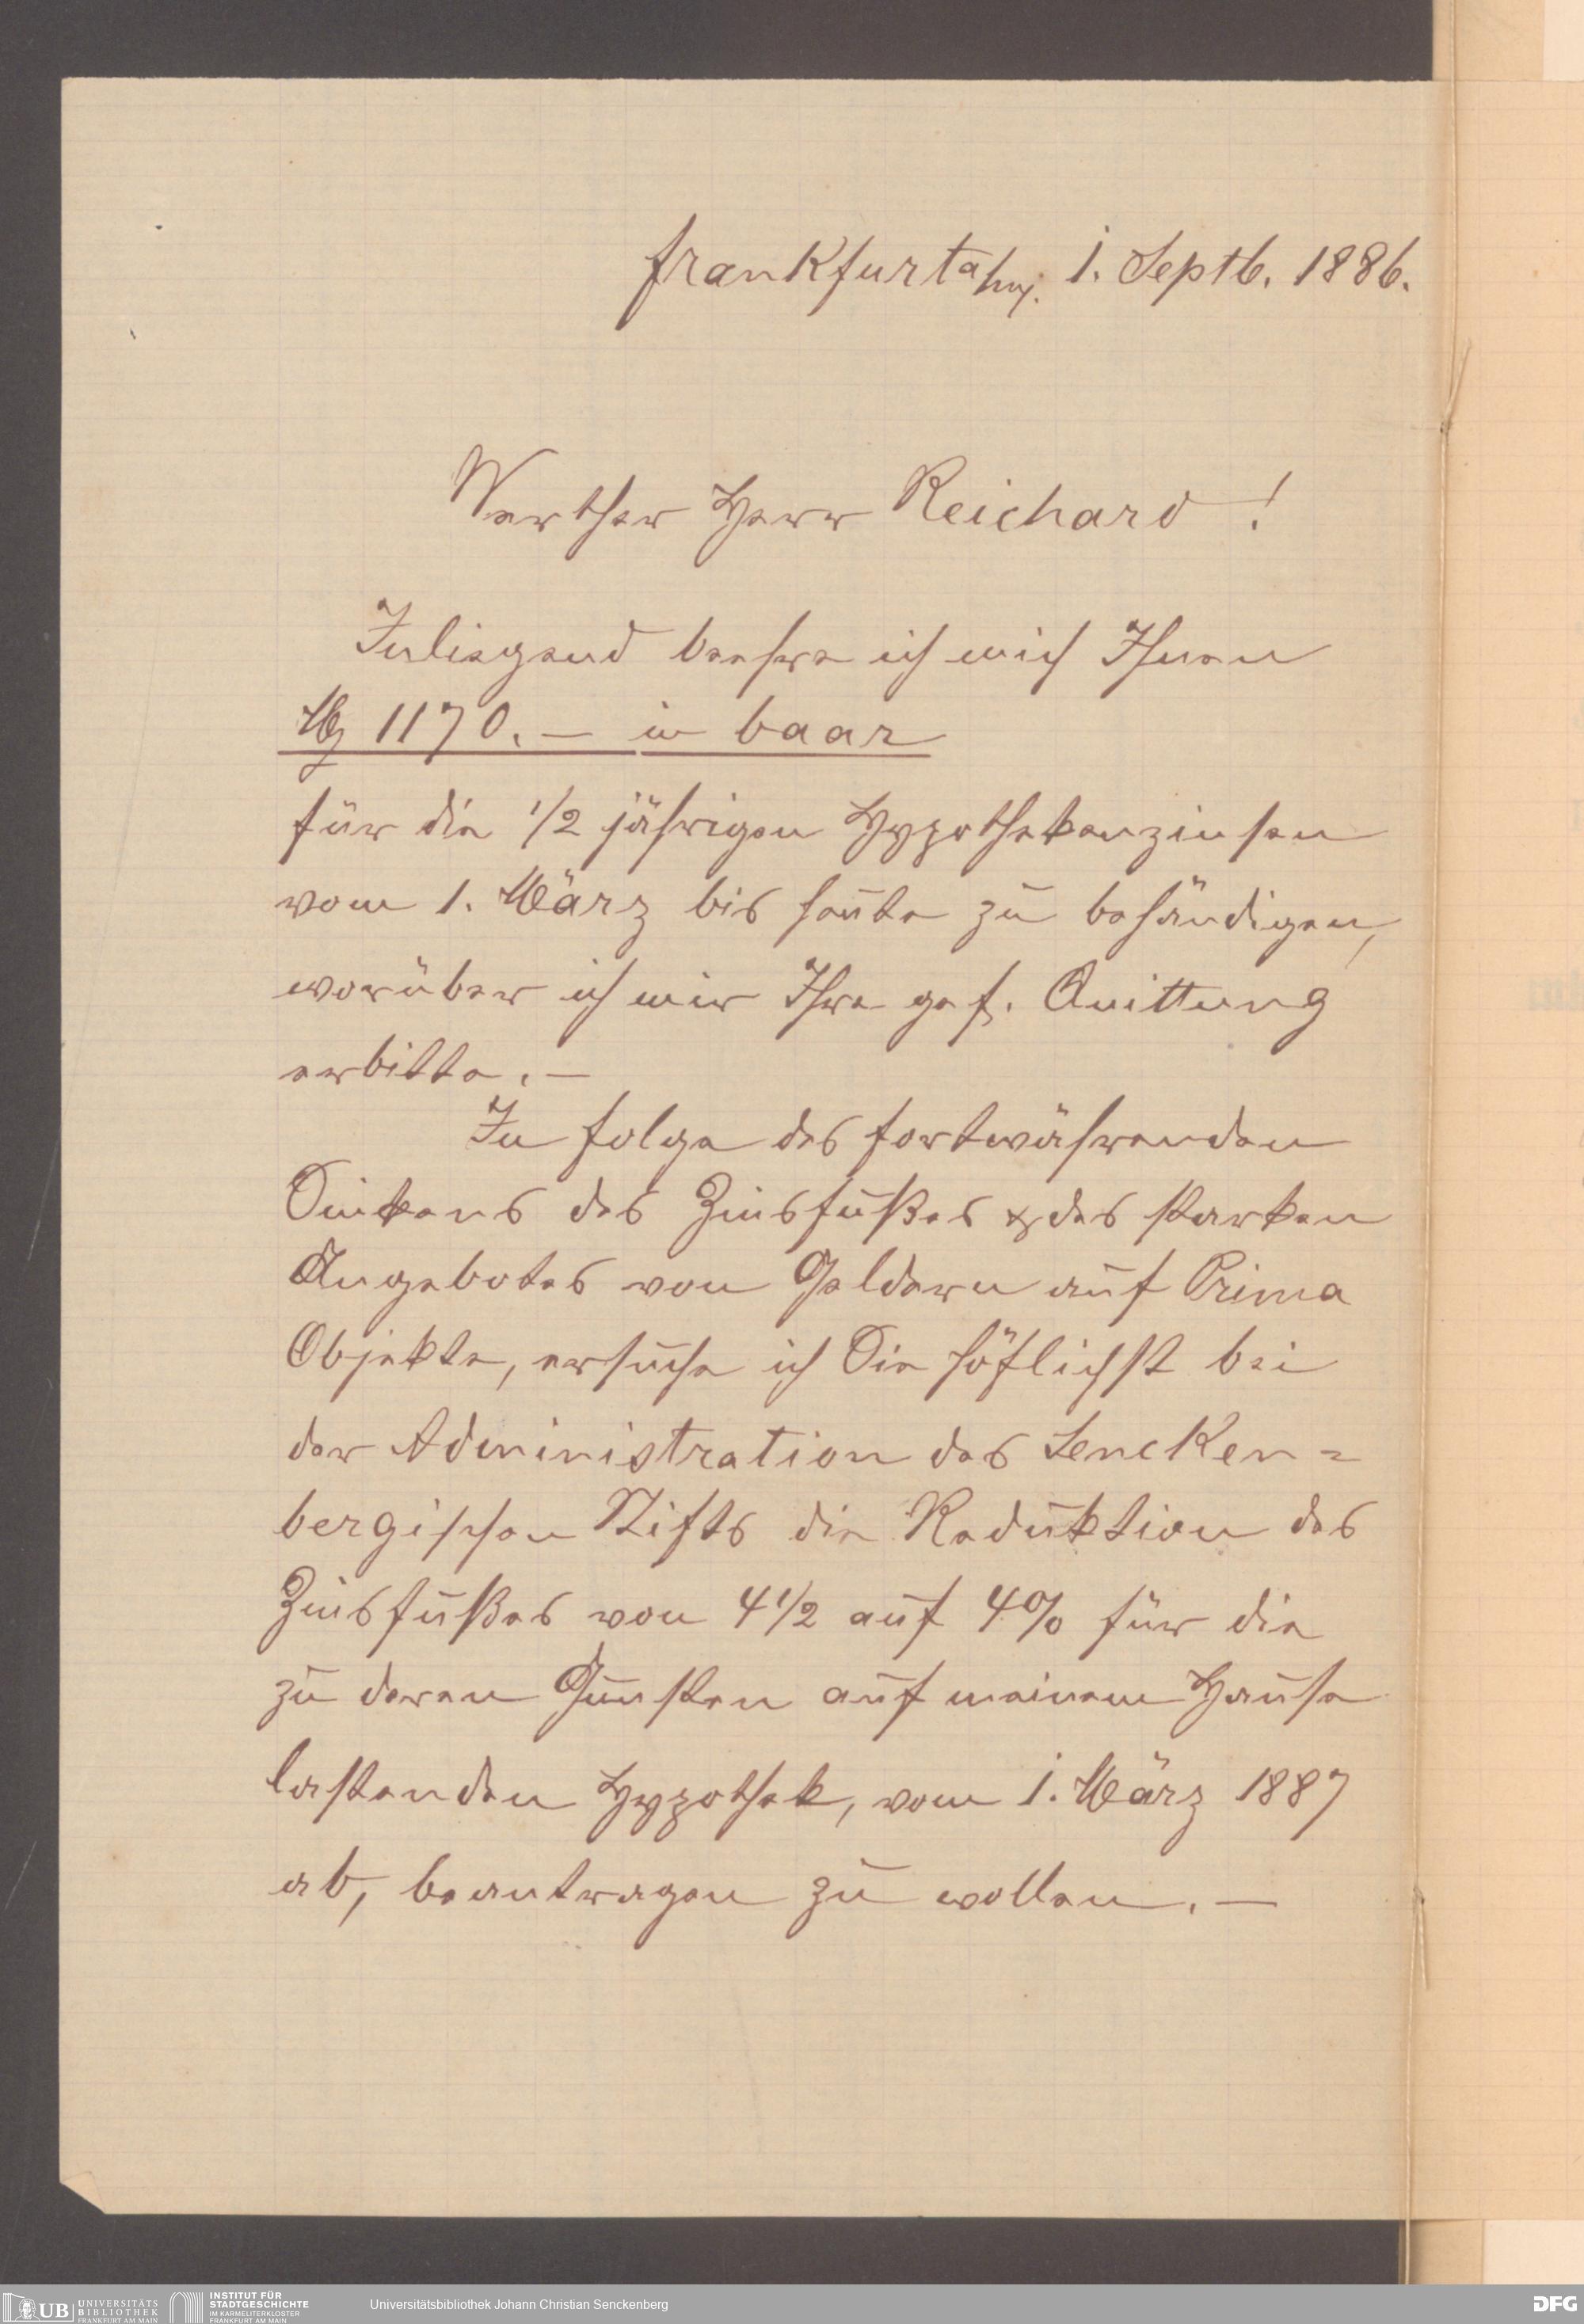 Frankfurt a/M. 1. Septb. 1886.
Werther Herr Reichard!
Inliegend beehre ich mich Ihnen
M 1170.— in baar
für die 1/2 jährigen Hypothekenzinsen
vom 1. März bis heute zu behändigen,
worüber ich mir Ihre gef. Quittung
erbitte.—
In folge des fortwährenden
Sinkens des Zinsfußes & des starken
Angebotes von Geldern auf Prima
Objekte, ersuche ich Sie höflichst bei
der Administration des Sencken=
bergischen Stifts die Reduktion des
Zinsfußes von 4 1/2 auf 4% für die
zu deren Gunsten auf meinem Hause
lastenden Hypothek, vom 1. März 1887
ab, beantragen zu wollen.—
UB UNIVERSITÄTS
BIBLIOTHEK
FRANKFURT AM MAIN
INSTITUT FÜR
STADTGESCHICHTE
IM KARMELITERKLOSTER
FRANKFURT AM MAIN
Universitätsbibliothek Johann Christian Senckenberg
DFG